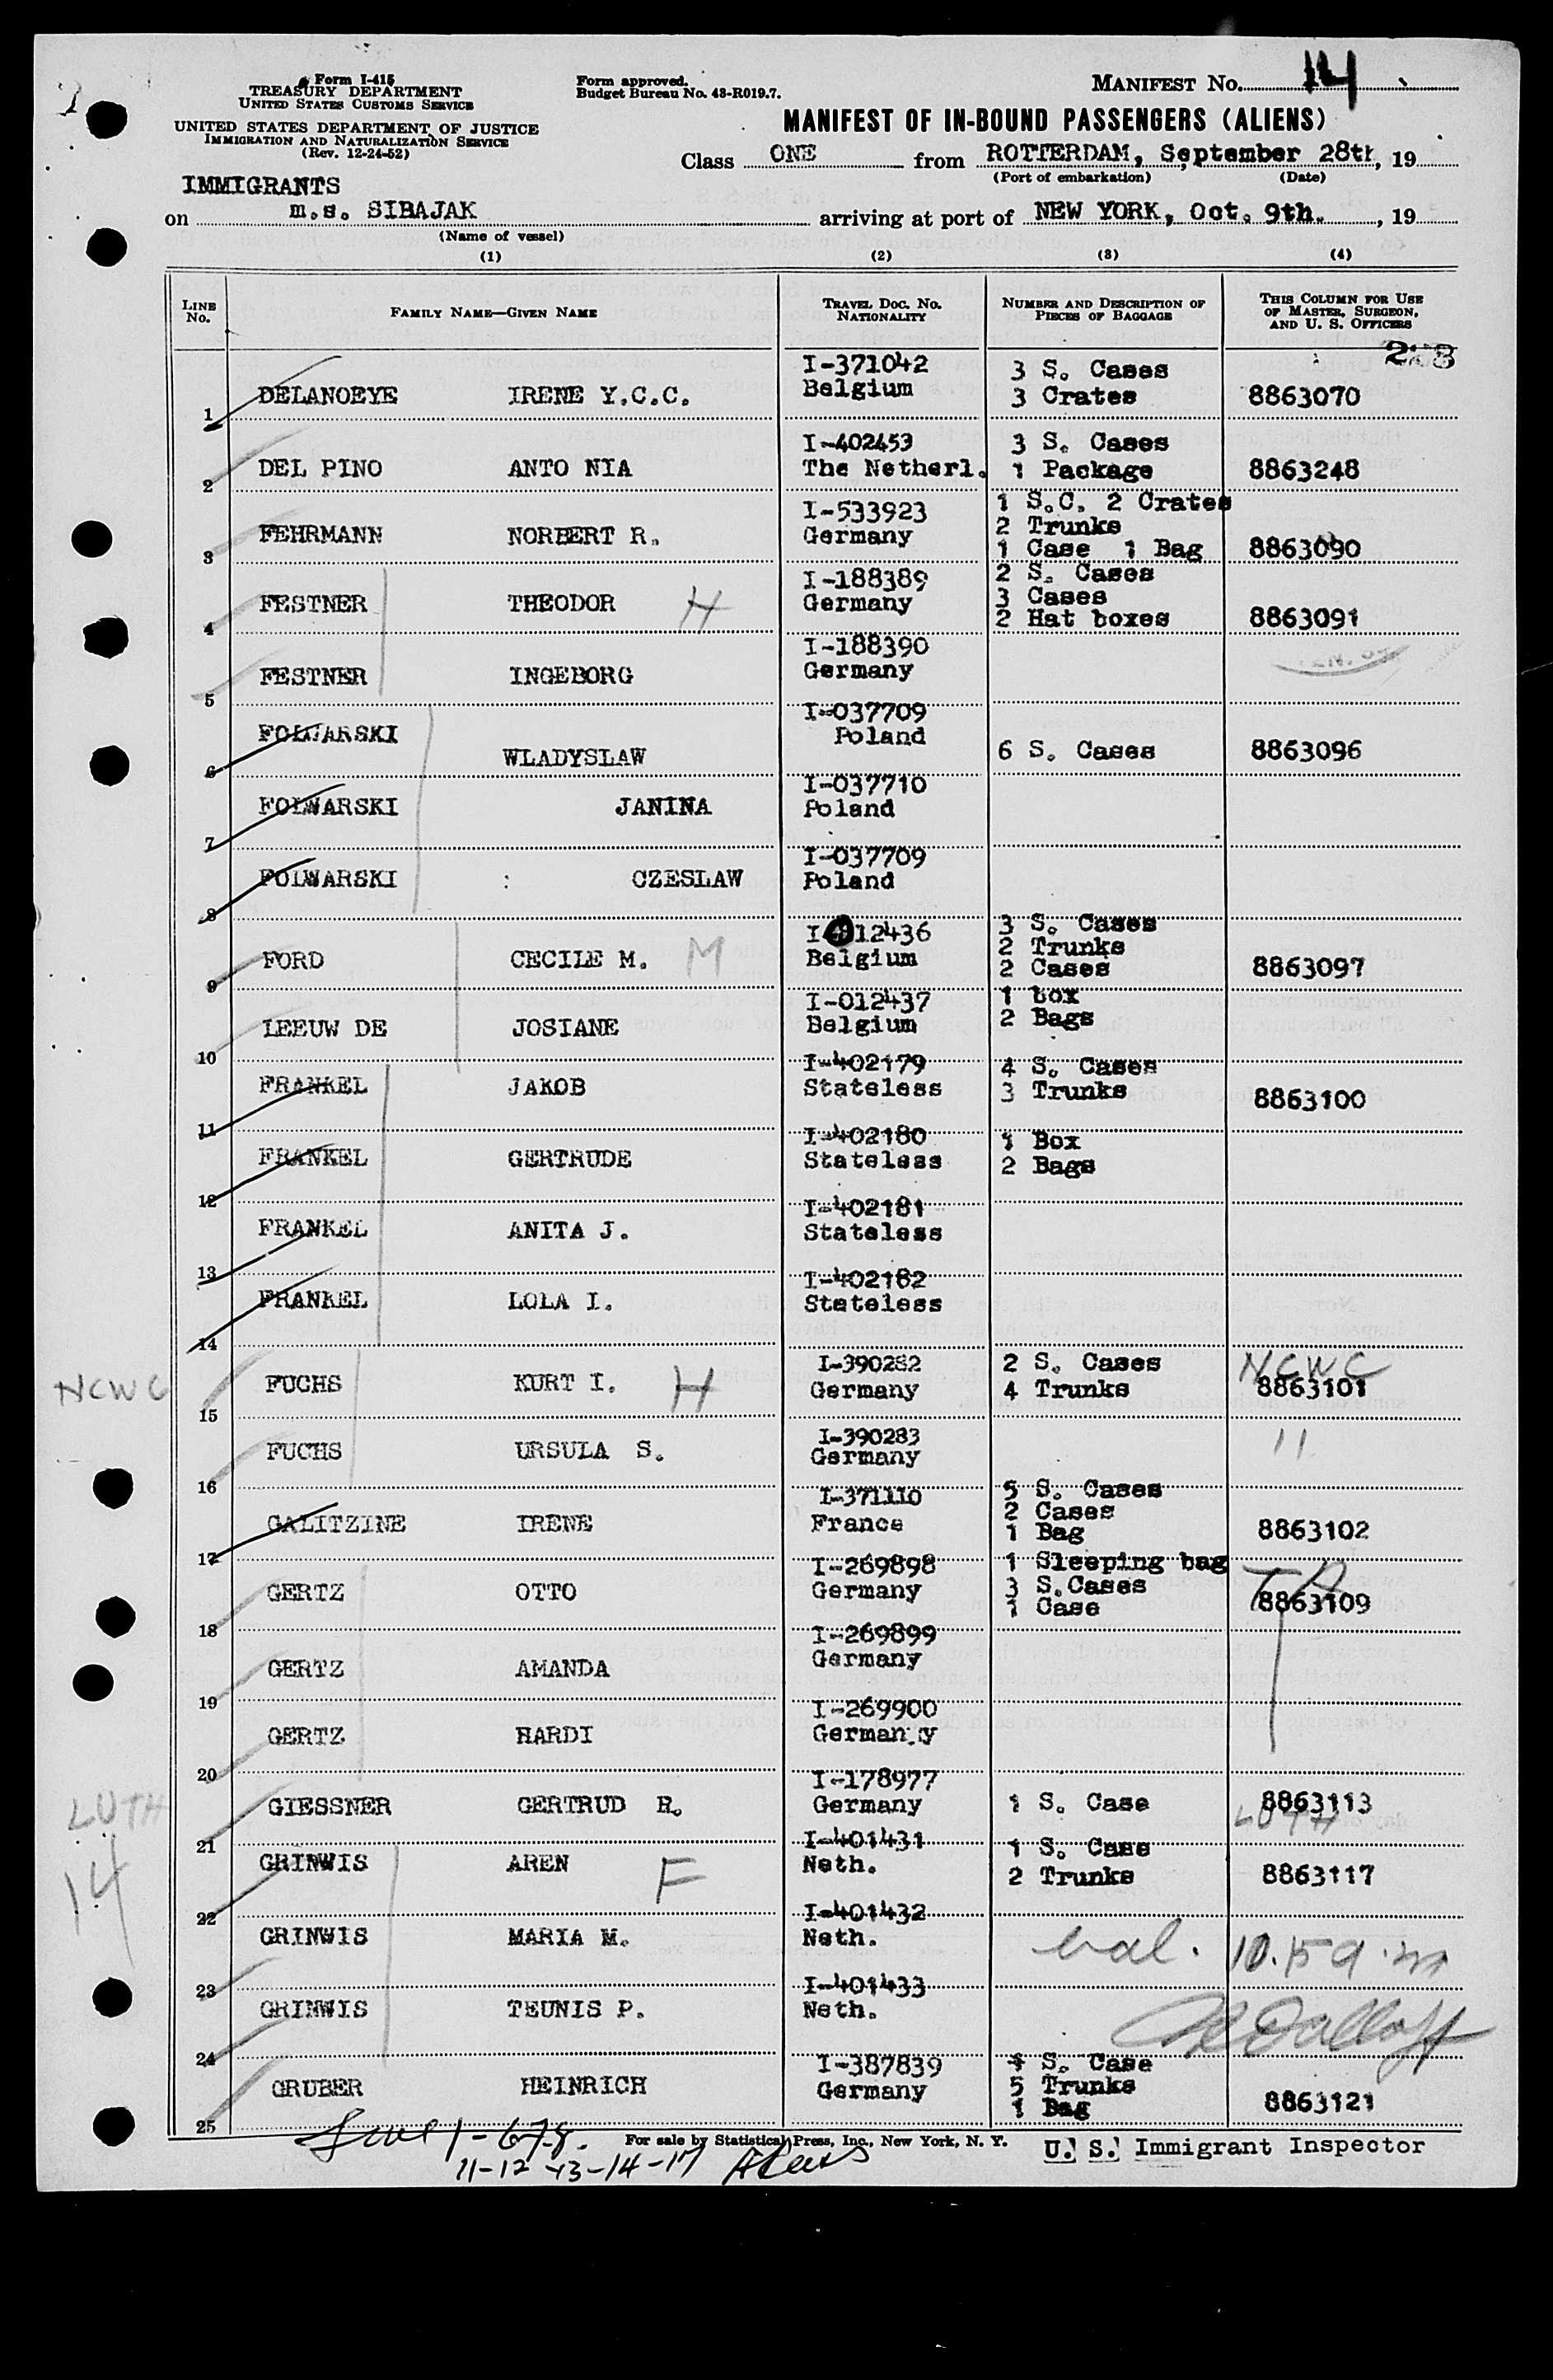 Form I-415
TREASURY DEPARTMENT
UNITED STATES CUSTOMS SERVICE
UNITED STATES DEPARTMENT OF JUSTICE
IMMIGRATION AND NATURALIZATION SERVICE
(Rev. 12-24-52)
Form approved.
Budget Bureau No. 43-R019.7.
MANIFEST No. 114
MANIFEST OF IN-BOUND PASSENGERS (ALIENS)
Class ONE from ROTTERDAM, September 28th, 19
(Port of embarkation) (Date)
IMMIGRANTS
on m.s. SIBAJAK arriving at port of NEW YORK, Oct. 9th. , 19
(Name of vessel)
(1) (2) (3) (4)
LINE No. FAMILY NAME—GIVEN NAME TRAVEL DOC. NO. NATIONALITY NUMBER AND DESCRIPTION OF PIECES OF BAGGAGE THIS COLUMN FOR USE OF MASTER, SURGEON, AND U. S. OFFICERS
I-371042 3 S. Cases
1 DELANOEYE IRENE Y.C.C. Belgium 3 Crates 8863070
I-402453 3 S. Cases
2 DEL PINO ANTO NIA The Netherl. 1 Package 8863248
I-533923 1 S.C. 2 Crates
2 Trunks
3 FEHRMANN NORBERT R. Germany 1 Case 1 Bag 8863090
I-188389 2 S. Cases
3 Cases
4 FESTNER THEODOR H Germany 2 Hat boxes 8863091
I-188390
5 FESTNER INGEBORG Germany
I-037709
6 FOLWARSKI WLADYSLAW Poland 6 S. Cases 8863096
I-037710
7 FOLWARSKI JANINA Poland
I-037709
8 FOLWARSKI : CZESLAW Poland
I-012436 3 S. Cases
2 Trunks
9 FORD CECILE M. M Belgium 2 Cases 8863097
I-012437 1 box
10 LEEUW DE JOSIANE Belgium 2 Bags
I-402179 4 S. Cases
11 FRANKEL JAKOB Stateless 3 Trunks 8863100
I-402180 1 Box
12 FRANKEL GERTRUDE Stateless 2 Bags
I-402181
13 FRANKEL ANITA J. Stateless
I-402182
14 FRANKEL LOLA I. Stateless
I-390282 2 S. Cases NCWC
NCWC 15 FUCHS KURT I. H Germany 4 Trunks 8863101
I-390283
16 FUCHS URSULA S. Germany 11
I-371110 5 S. Cases
2 Cases
17 GALITZINE IRENE France 1 Bag 8863102
I-269898 1 Sleeping bag
3 S.Cases
18 GERTZ OTTO Germany 1 Case 8863109
I-269899
19 GERTZ AMANDA Germany
I-269900
20 GERTZ HARDI Germany
I-178977
LUTH 21 GIESSNER GERTRUD R. Germany 1 S. Case 8863113
LUTH
14
I-401431 1 S. Case
22 GRINWIS AREN F Neth. 2 Trunks 8863117
I-401432
23 GRINWIS MARIA M. Neth.
I-401433
24 GRINWIS TEUNIS P. Neth.
I-387839 1 S. Case
5 Trunks
25 GRUBER HEINRICH Germany 1 Bag 8863121
1-6-7-8.
11-12-13-14-17
For sale by Statistical Press, Inc., New York, N. Y.
U. S. Immigrant Inspector